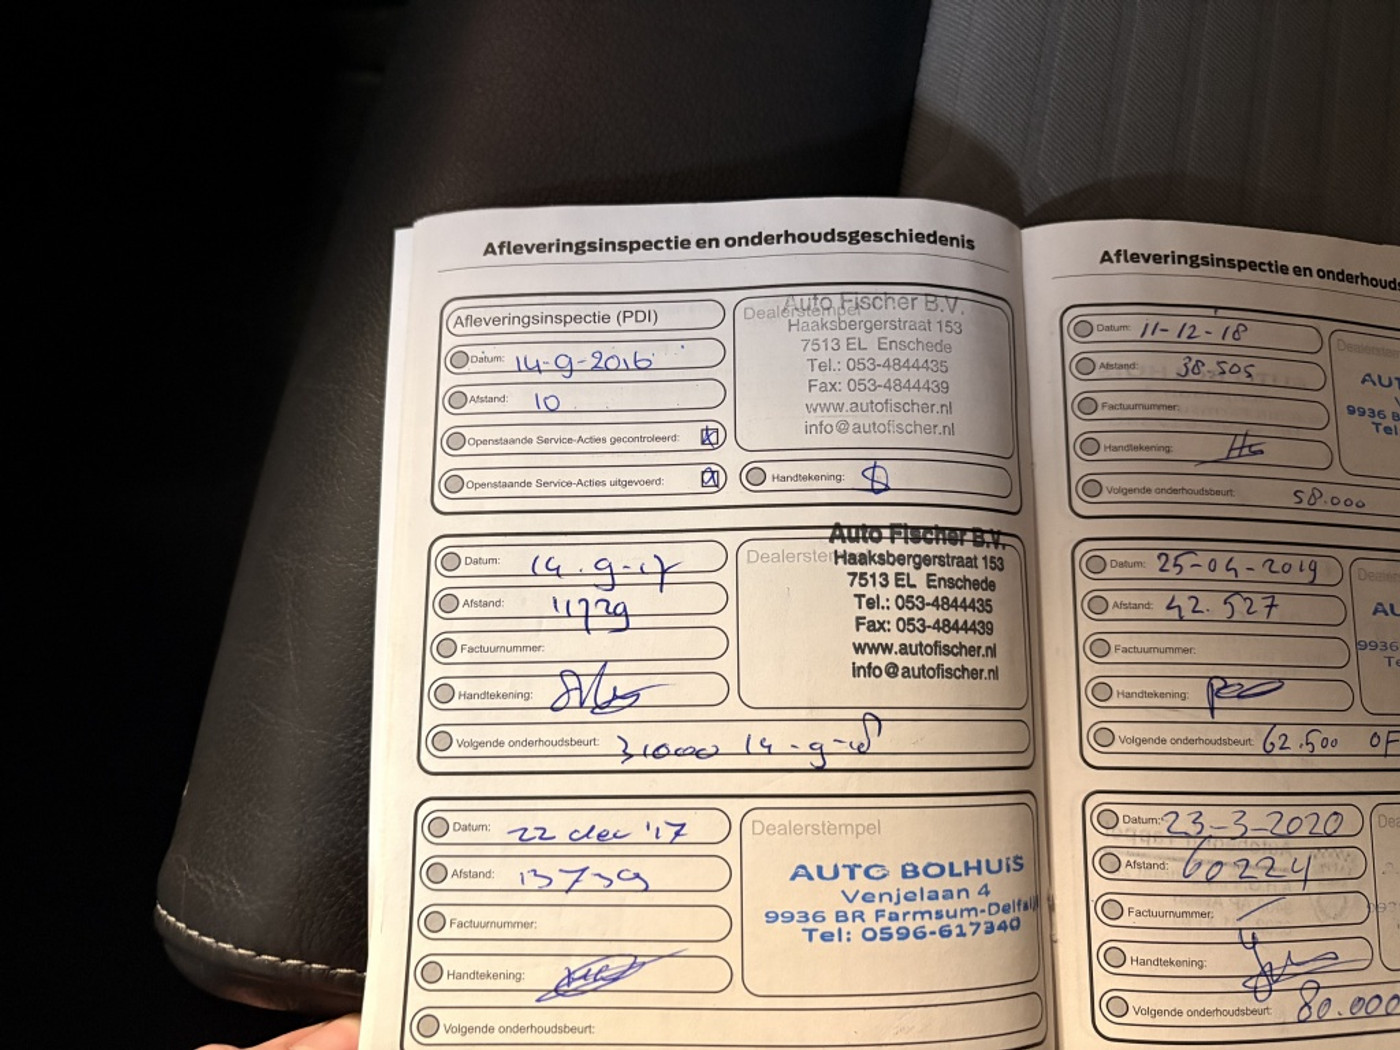 Afleveringsinspectie en onderhoudsgeschiedenis
Afleveringsinspectie (PDI)
Datum: 14-9-2016
Afstand: 10
Openstaande Service-Acties gecontroleerd:
Openstaande Service-Acties uitgevoerd:
Dealerstempel
Auto Fischer B.V.
Haaksbergerstraat 153
7513 EL Enschede
Tel.: 053-4844435
Fax: 053-4844439
www.autofischer.nl
info@autofischer.nl
Handtekening:
Datum: 14.9-17
Afstand: 11729
Factuurnummer:
Handtekening:
Volgende onderhoudsbeurt: 31000 14-9-18
Auto Fischer B.V.
Haaksbergerstraat 153
7513 EL Enschede
Tel.: 053-4844435
Fax: 053-4844439
www.autofischer.nl
info@autofischer.nl
Datum: 22 dec '17
Afstand: 13739
Factuurnummer:
Handtekening:
Volgende onderhoudsbeurt:
Dealerstempel
AUTO BOLHUIS
Venjelaan 4
9936 BR Farmsum-Delfzijl
Tel: 0596-617340
Afleveringsinspectie en
Datum: 11-12-18
Afstand: 38.505
Factuurnummer:
Handtekening:
Volgende onderhoudsbeurt: 58.000
9936 B
Tel
Datum: 25-04-2019
Afstand: 42.527
Factuurnummer:
Handtekening:
Volgende onderhoudsbeurt: 62.500 OF
9936
Datum: 23-3-2020
Afstand: 60224
Factuurnummer:
Handtekening:
Volgende onderhoudsbeurt: 80.000